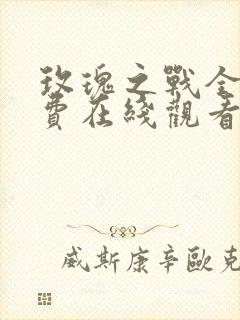 玫瑰之戰全
費在綫觀看
威斯康辛歐克